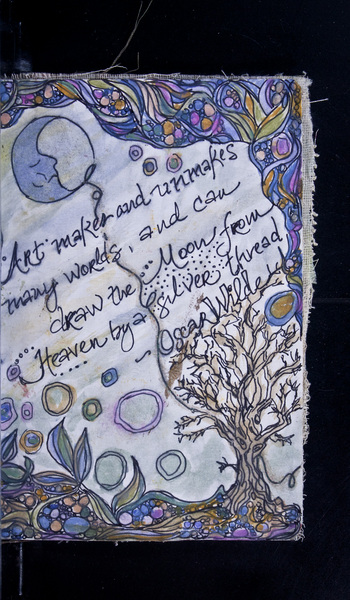 Art makes and unmakes
many worlds, and can
draw the Moon from
Heaven by a silver thread
~ Oscar Wilde ~